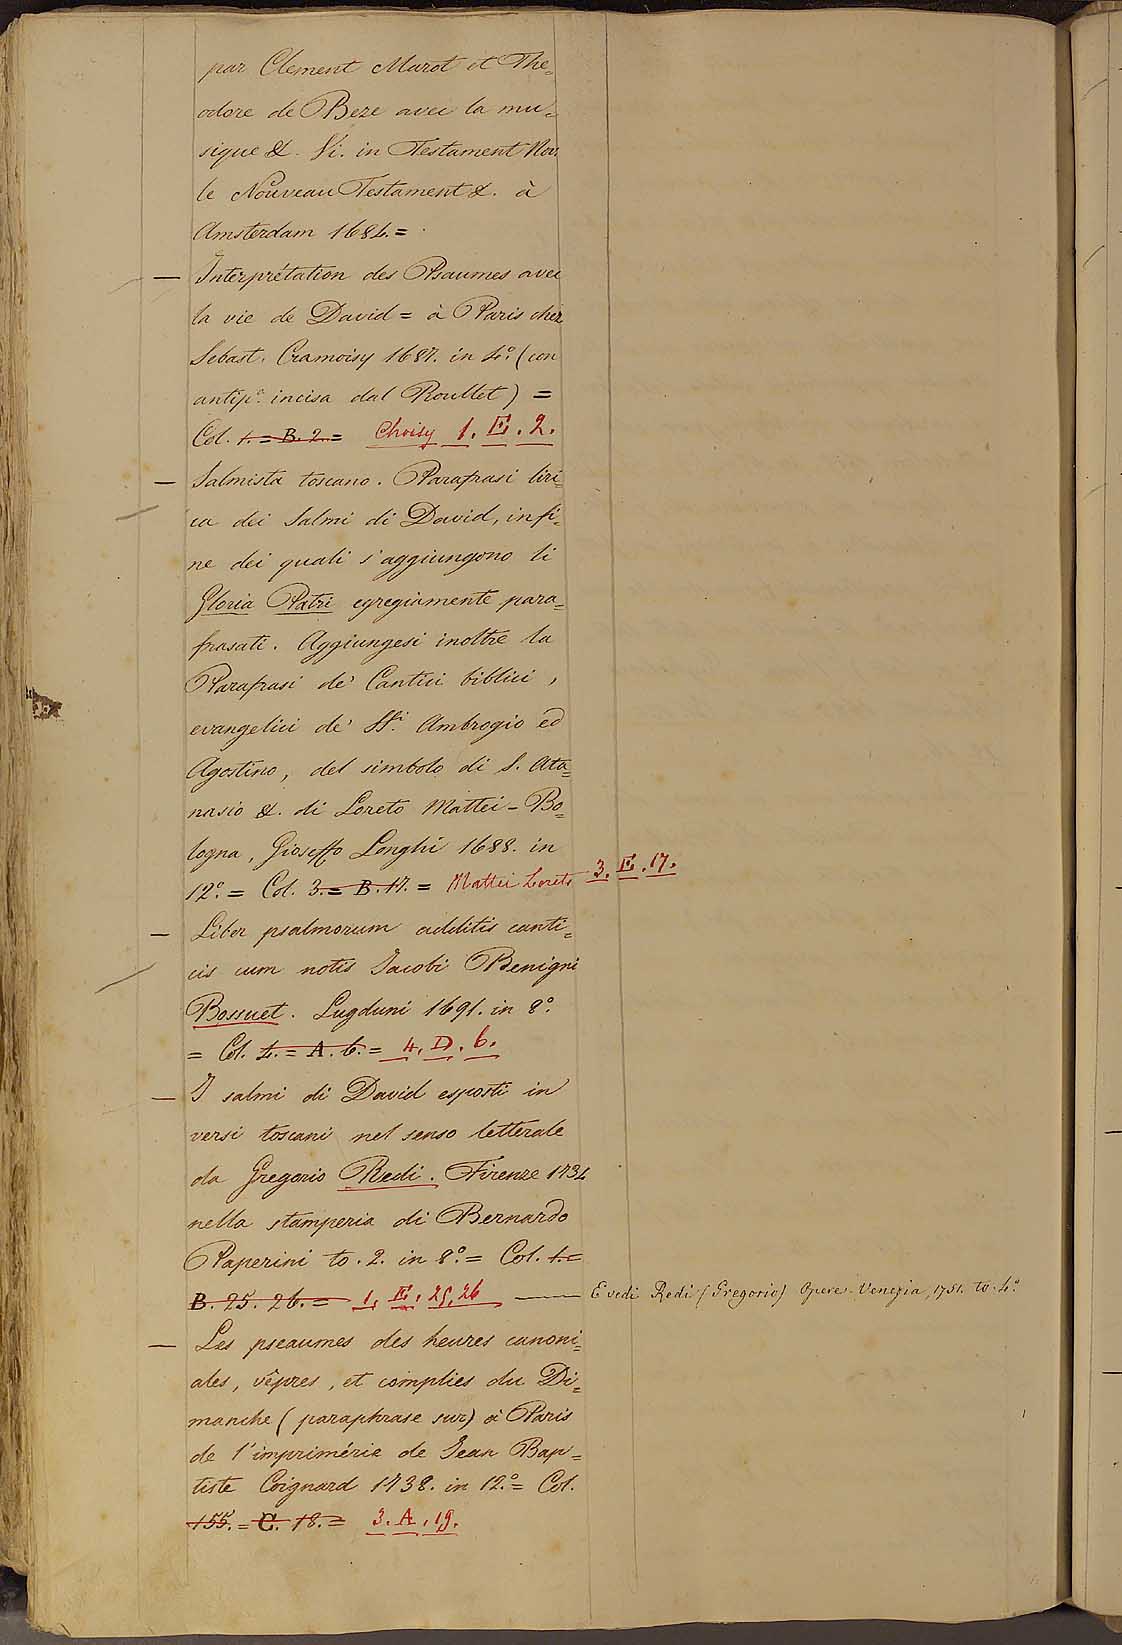 par Clement Marot et The=
odore de Beze avec la mu=
sique &. Vi. in Testament Nov.
le Nouveau Testament &. à
Amsterdam 1684. =
— Interprétation des Psaumes avec
la vie de David = à Paris chez
Sebast. Cramoisy 1687. in 4.° (con
antip.ª incisa dal Roullet) =
Col. 1. = B. 2. = Choisy 1. E. 2.
— Salmista toscano. Parafrasi liri=
ca dei Salmi di David, in fi=
ne dei quali s'aggiungono li
Gloria Patri egregiamente para=
frasati. Aggiungesi inoltre la
Parafrasi de' Cantici biblici,
evangelici de' SS.i Ambrogio ed
Agostino, del simbolo di S. Ata=
nasio &. di Loreto Mattei - Bo=
logna, Gioseffo Longhi 1688. in
12.° = Col. 3. = B. 17. = Mattei Loreto 3. E. 17.
— Liber psalmorum additis canti=
cis cum notis Jacobi Benigni
Bossuet. Lugduni 1691. in 8.°
= Col. 4. = A. 6. = 4. D. 6.
— I salmi di David esposti in
versi toscani nel senso letterale
da Gregorio Redi. Firenze 1734
nella stamperia di Bernardo
Paperini to. 2. in 8.° = Col. 1. =
B. 25. 26. = 1. E. 25, 26 — E vedi Redi (Gregorio) Opere. Venezia, 1751. to. 4.°
— Les pseaumes des heures canoni=
ales, vêpres, et complies du Di=
manche (paraphrase sur) à Paris
de l'imprimérie de Jean Bap=
tiste Coignard 1738. in 12.° = Col.
155. = C. 18. = 3. A. 19.